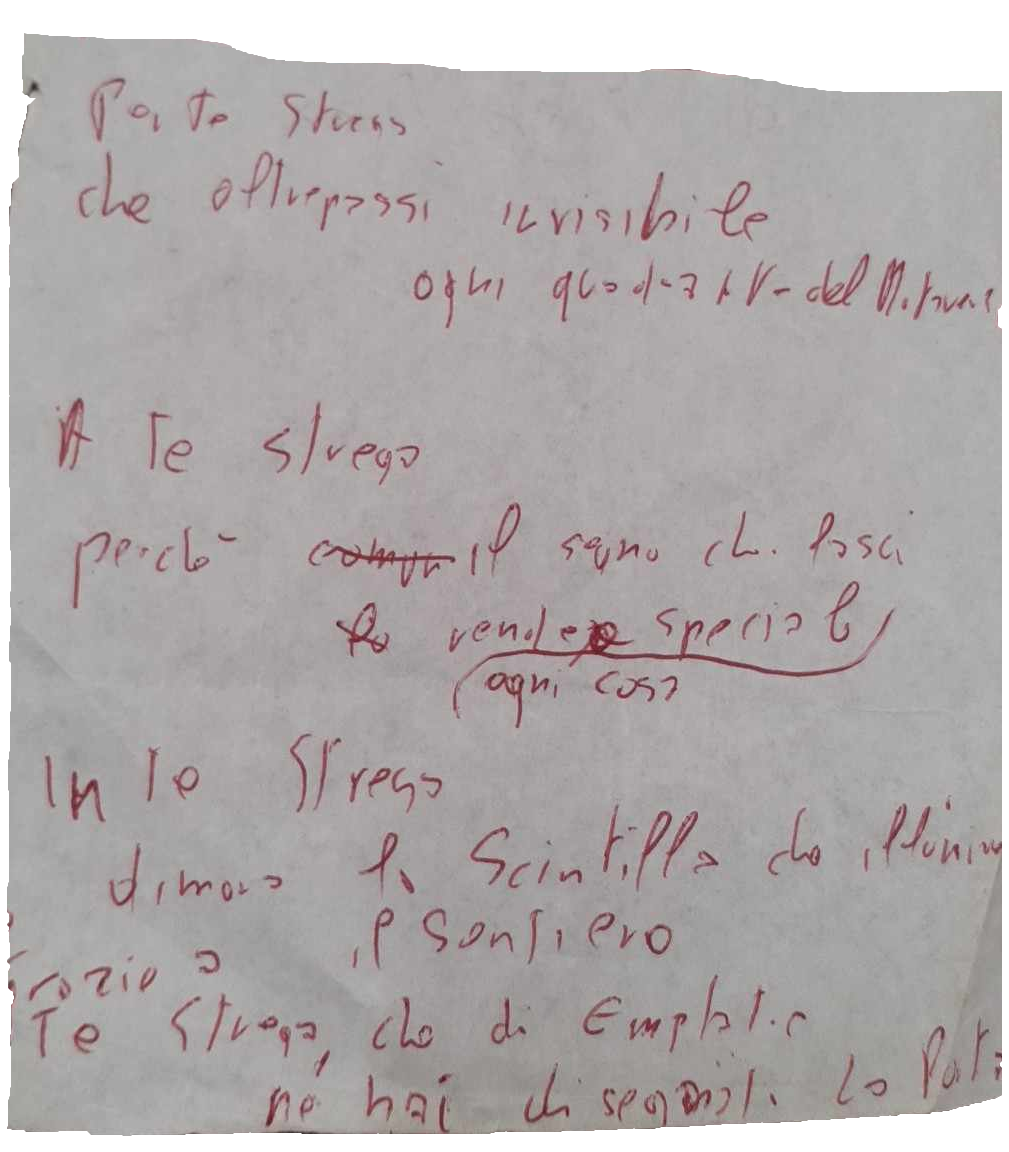 Per Te Strega
che oltrepassi invisibile
ogni quadrante del
A Te strega
perché comun il segno che lasci
lo rende speciale
ogni cosa
In Te Strega
dimora la Scintilla che illumin
il Sentiero
Grazie a
Te Strega, che di Empatia
ne hai disegnat.